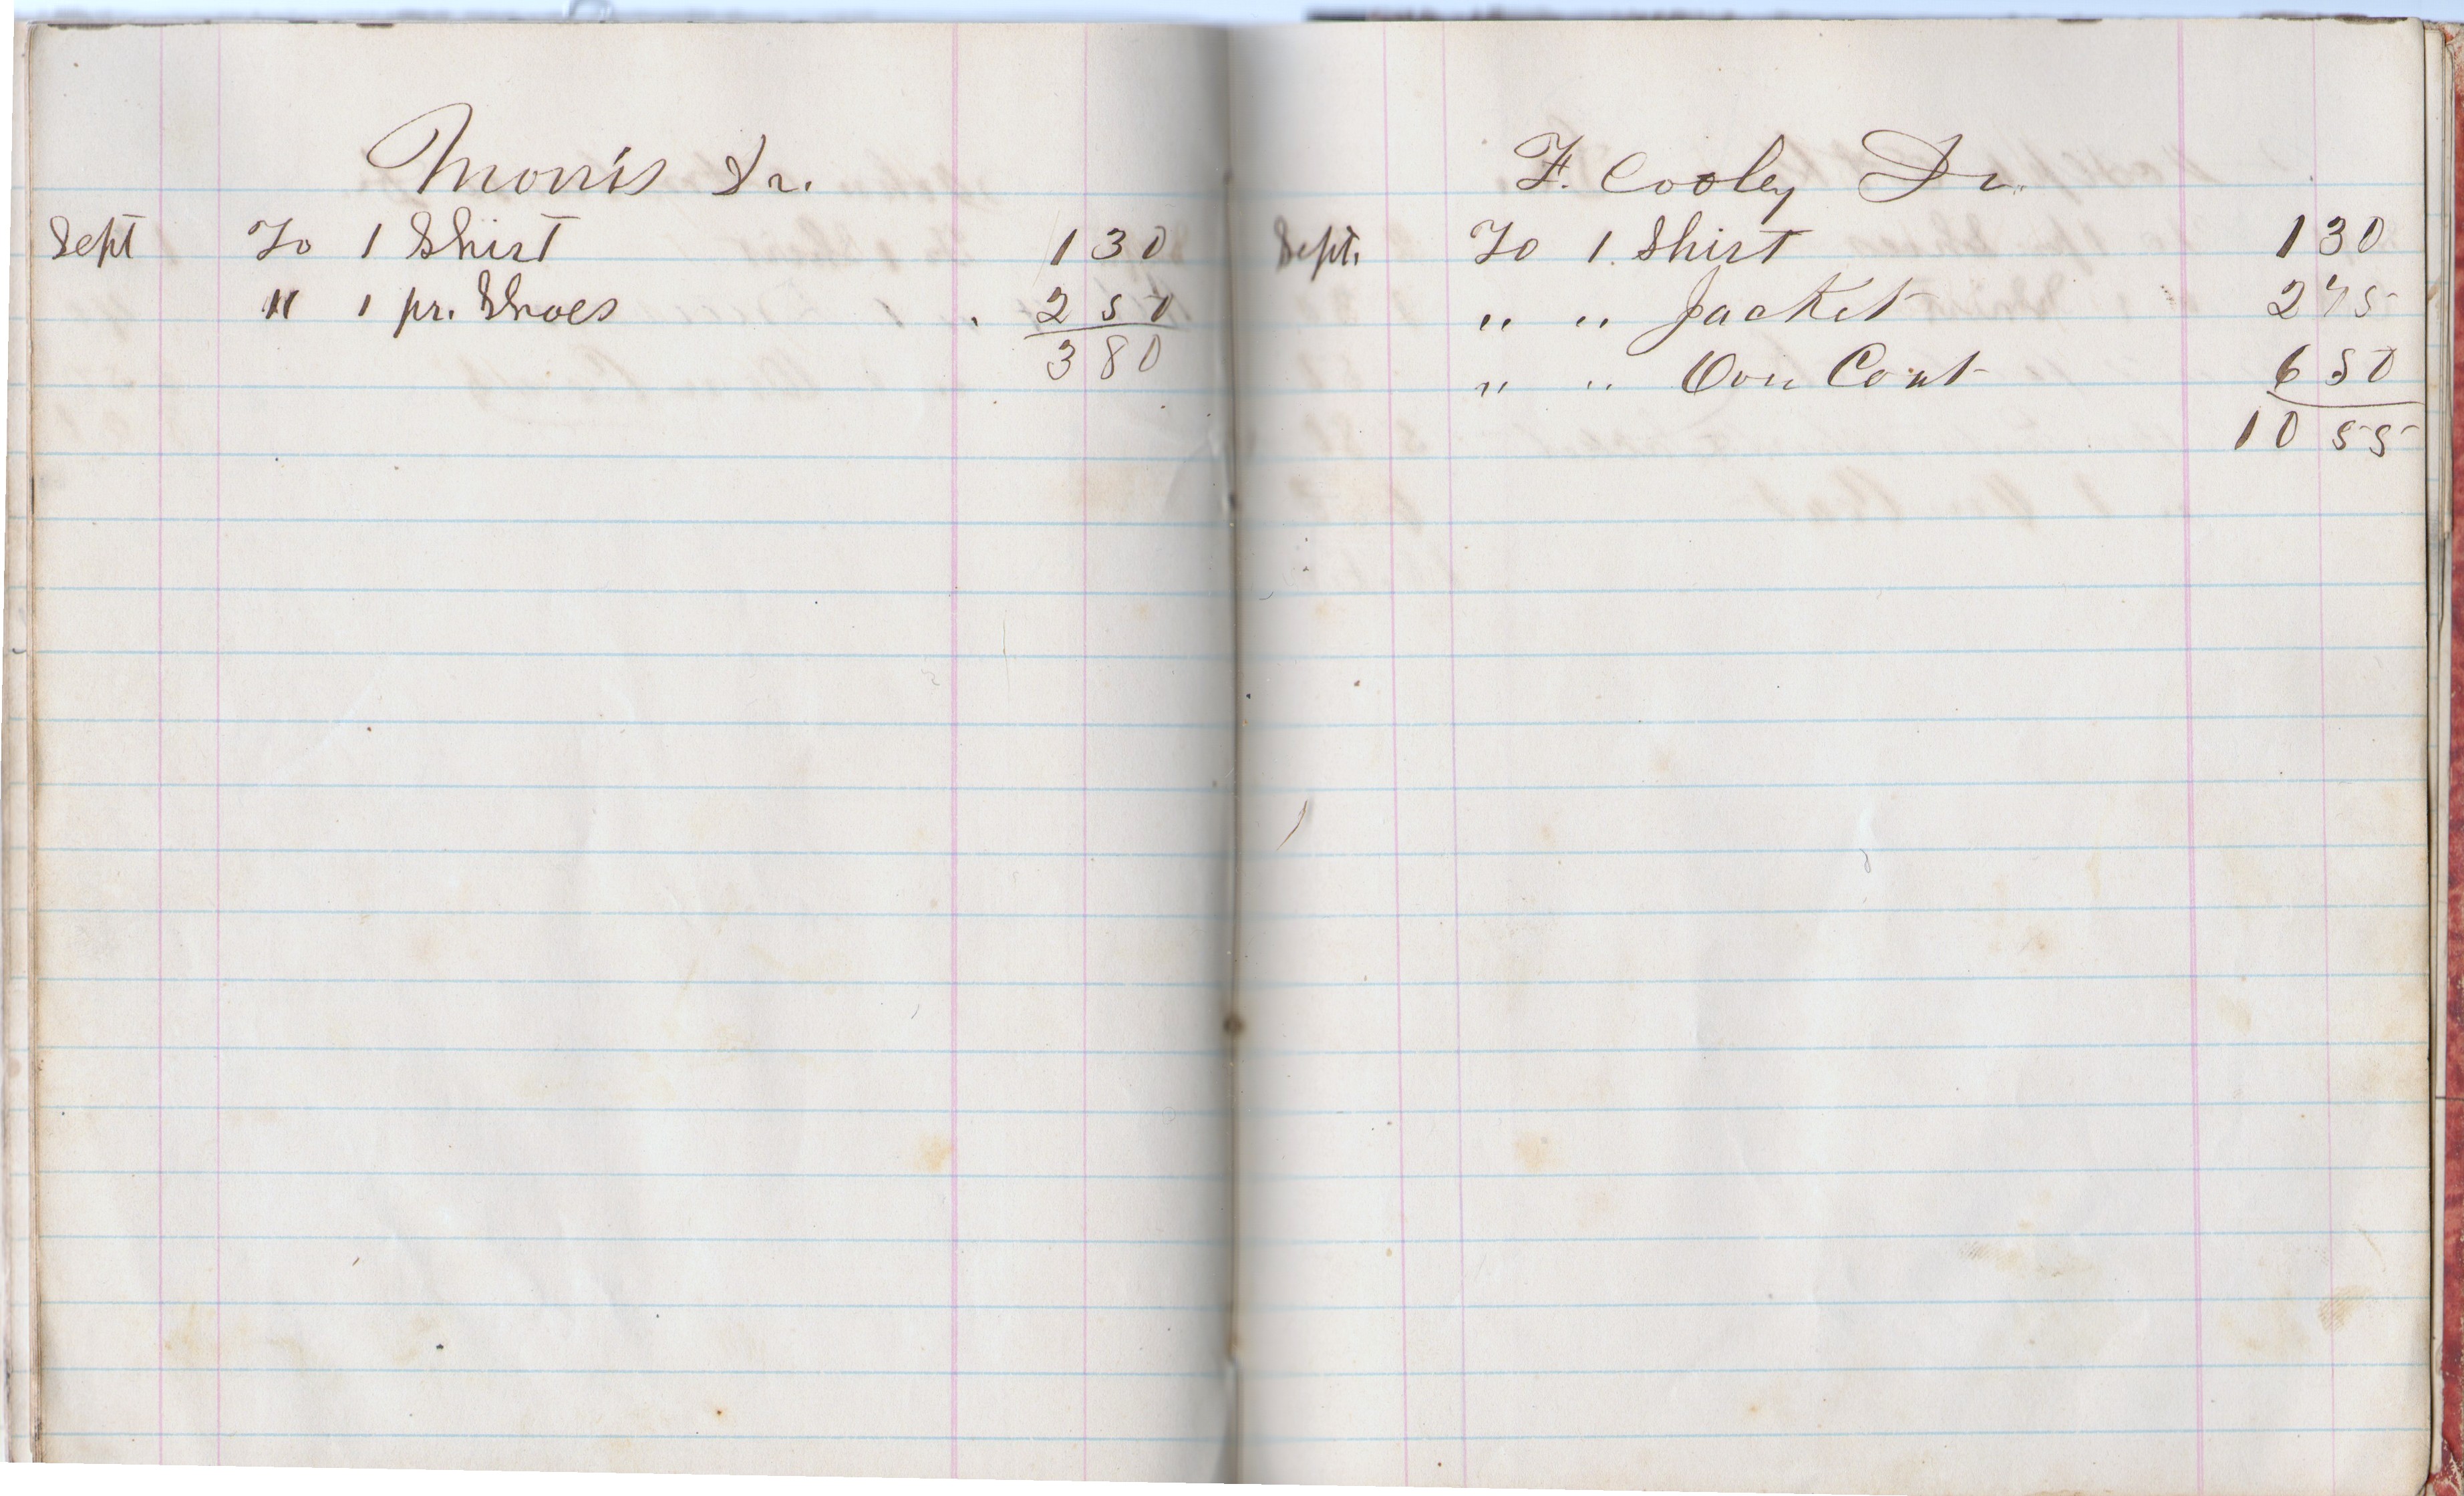 Morris Dr.
Sept To 1 Shirt 1 30
" 1 pr. Shoes 2 50
3 80
F. Cooley Dr.
Sept. To 1 Shirt 1 30
" " Jacket 2 75
" " Coat 6 50
10 55